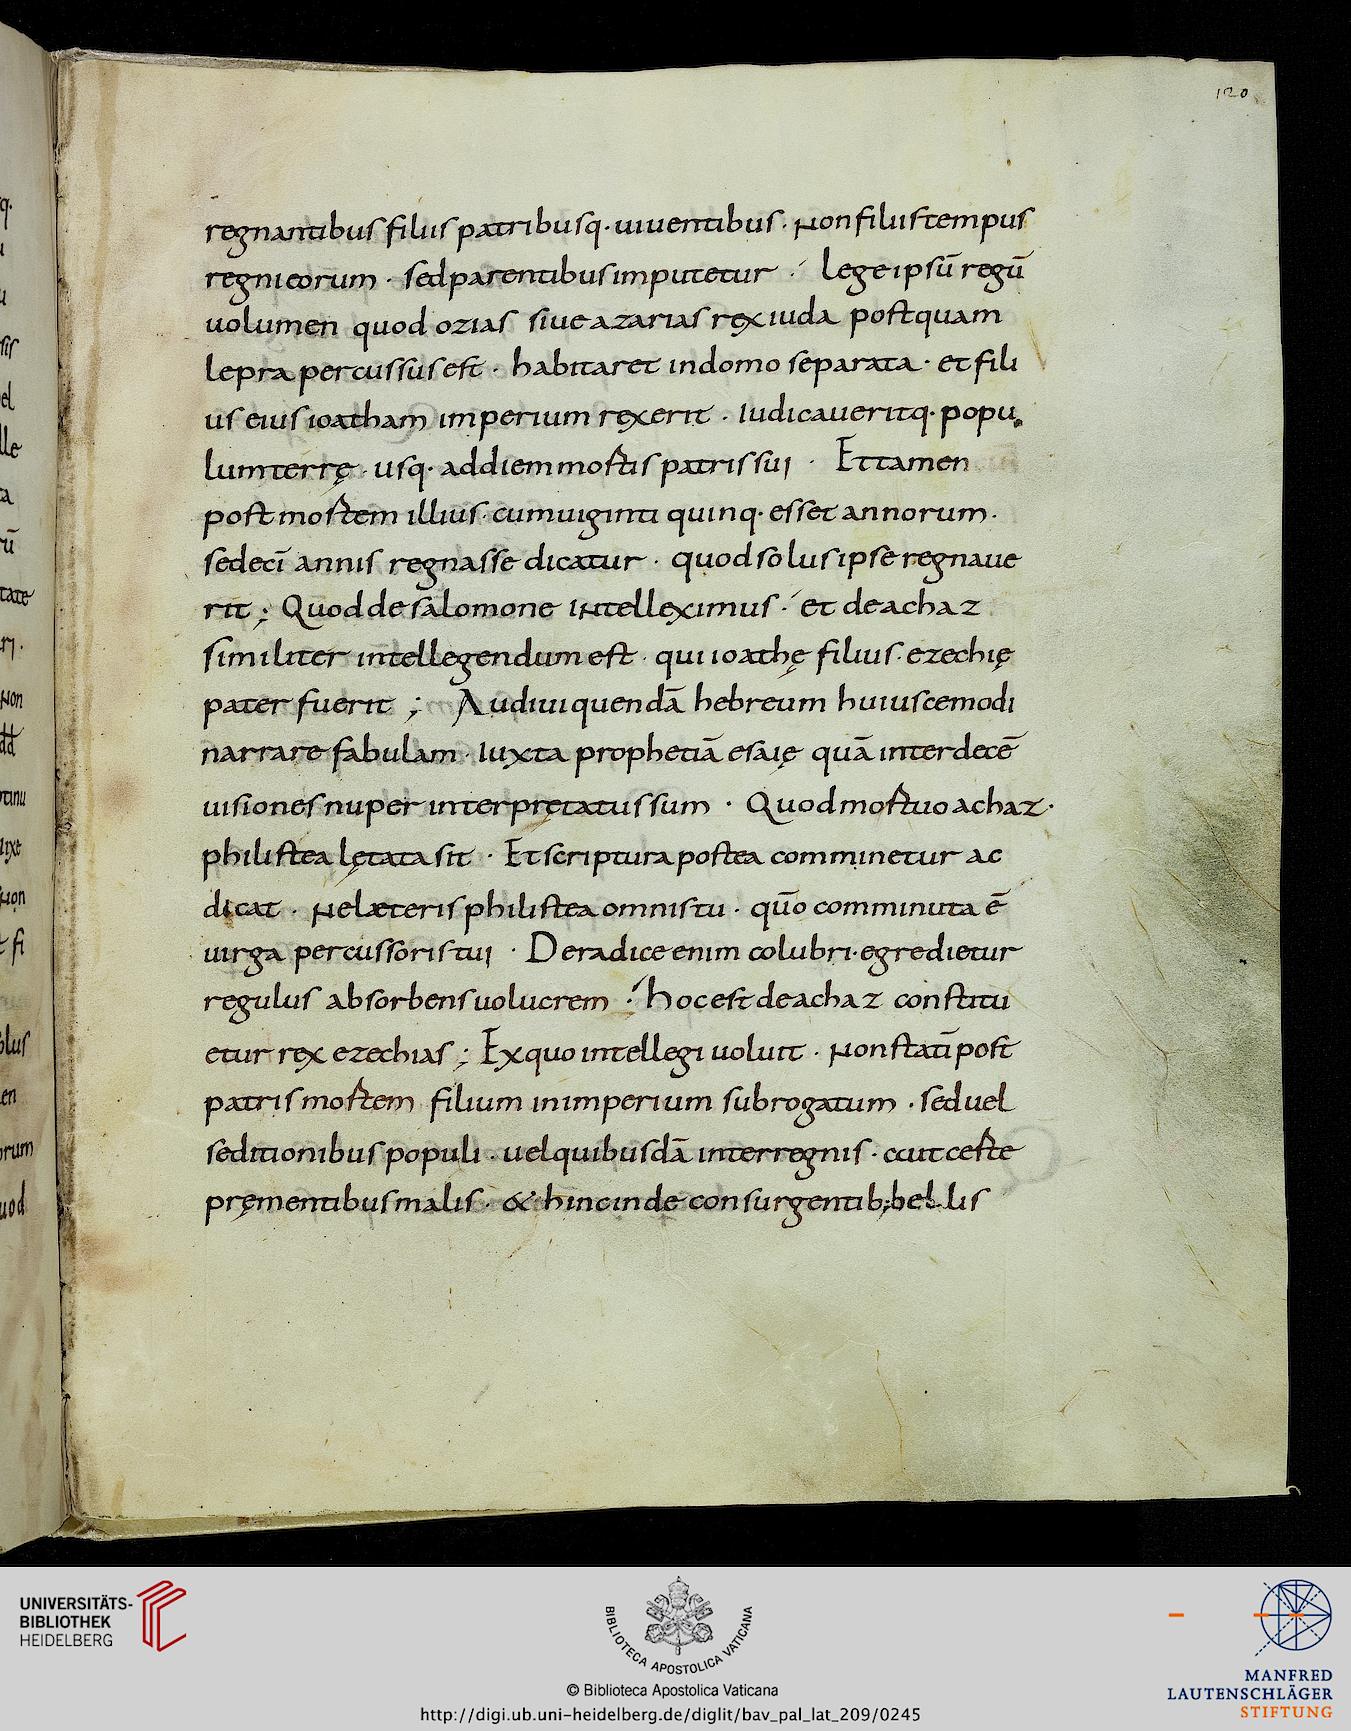 120
regnantibus filiis patribusq· uiuentibus · Non filiis tempus
regni eorum · sed parentibus imputetur · Lege ipsū regū
uolumen quod ozias siue azarias rex iuda postquam
lepra percussus est · habitaret in domo separata · et fili
us eius ioatham imperium rexerit · Iudicaueritq· popu
lum terrę · usq· ad diem mortis patris sui · Et tamen
post mortem illius · cum uiginti quinq· esset annorum ·
sedecī annis regnasse dicatur · quod solus ipse regnaue
rit ; Quod de salomone intelleximus · et de achaz
similiter intellegendum est · qui ioathę filius · ezechię
pater fuerit ; Audiui quendā hebreum huiuscemodi
narrare fabulam · Iuxta prophetiā esaię quā inter decē
uisiones nuper interpretatus sum · Quod mortuo achaz ·
philistea lętata sit · Et scriptura postea comminetur ac
dicat · Ne læteris philistea omnis tu · qūo comminuta ē
uirga percussoris tui · De radice enim colubri · egredietur
regulus absorbens uolucrem · hoc est de achaz constitu
etur rex ezechias ; Ex quo intellegi uoluit · Non statī post
patris mortem filium in imperium subrogatum · sed uel
seditionibus populi · uel quibusdā interregnis · aut certe
pręmentibus malis · & hinc inde consurgentib; bellis
UNIVERSITÄTS-
BIBLIOTHEK
HEIDELBERG
BIBLIOTECA APOSTOLICA VATICANA
© Biblioteca Apostolica Vaticana
http://digi.ub.uni-heidelberg.de/diglit/bav_pal_lat_209/0245
MANFRED
LAUTENSCHLÄGER
STIFTUNG